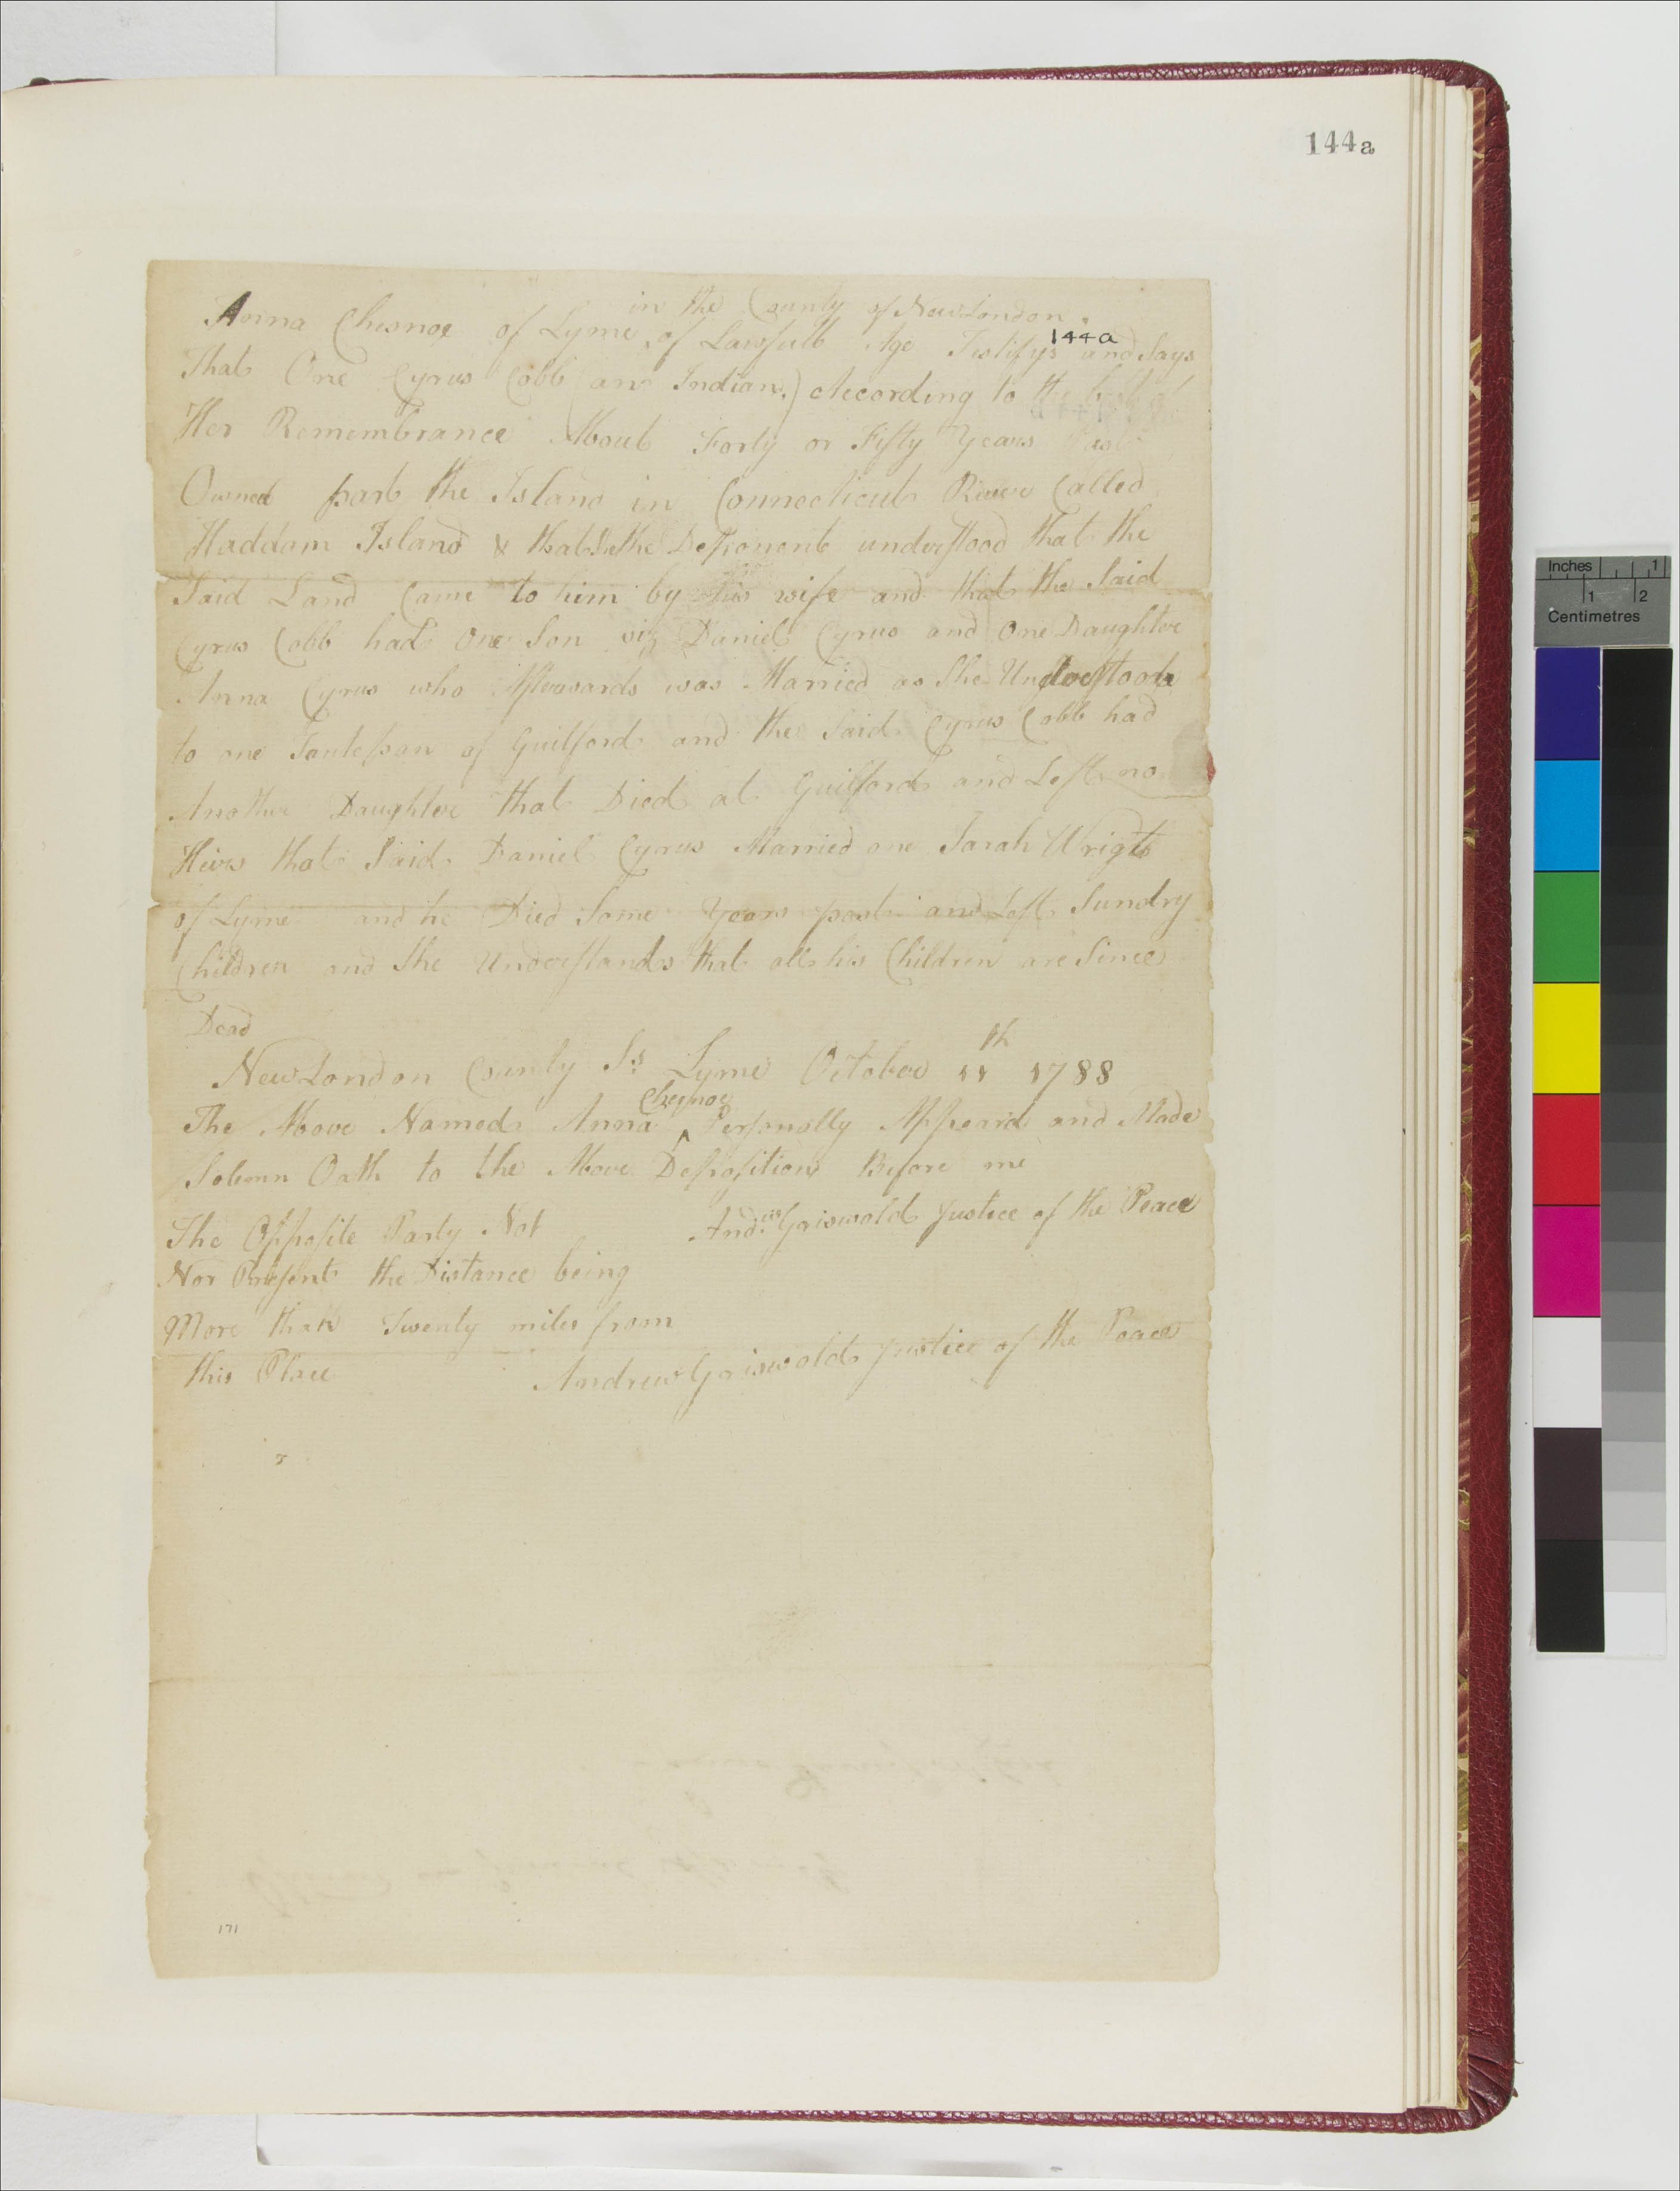 144a
in the County of New London
Anna Chesnoe of Lyme of Lawfull Age Testifys and Says
144a
That One Cyrus Cobb (an Indian,) According to the best of
Her Remembrance About Forty or Fifty Years Past
Owned part the Island in Connecticut River Called
Haddam Island & that the Deponent understood that the
Said Land Came to him by his wife and that the Said
Cyrus Cobb had One Son viz Daniel Cyrus and One Daughter
Anna Cyrus who Afterwards was Married as She Understood
to one of Guilford and the Said Cyrus Cobb had
Another Daughter that Died at Guilford and Left no
Heirs that Said Daniel Cyrus Married one Sarah Wright
of Lyme and he Died Some Years past and Left Sundry
Children and She Understands that all his Children are Since
Dead
New London County Ss. Lyme October 11th 1788
Chesnoe
The Above Named Anna ^ Personally Appeard and Made
Solemn Oath to the Above Deposition Before me
Andw. Griswold Justice of the Peace
The Opposite Party Not
Nor Present the Distance being
More than Twenty miles from
this Place
Andrew Griswold Justice of the Peace
171
Inches 1
1 2
Centimetres